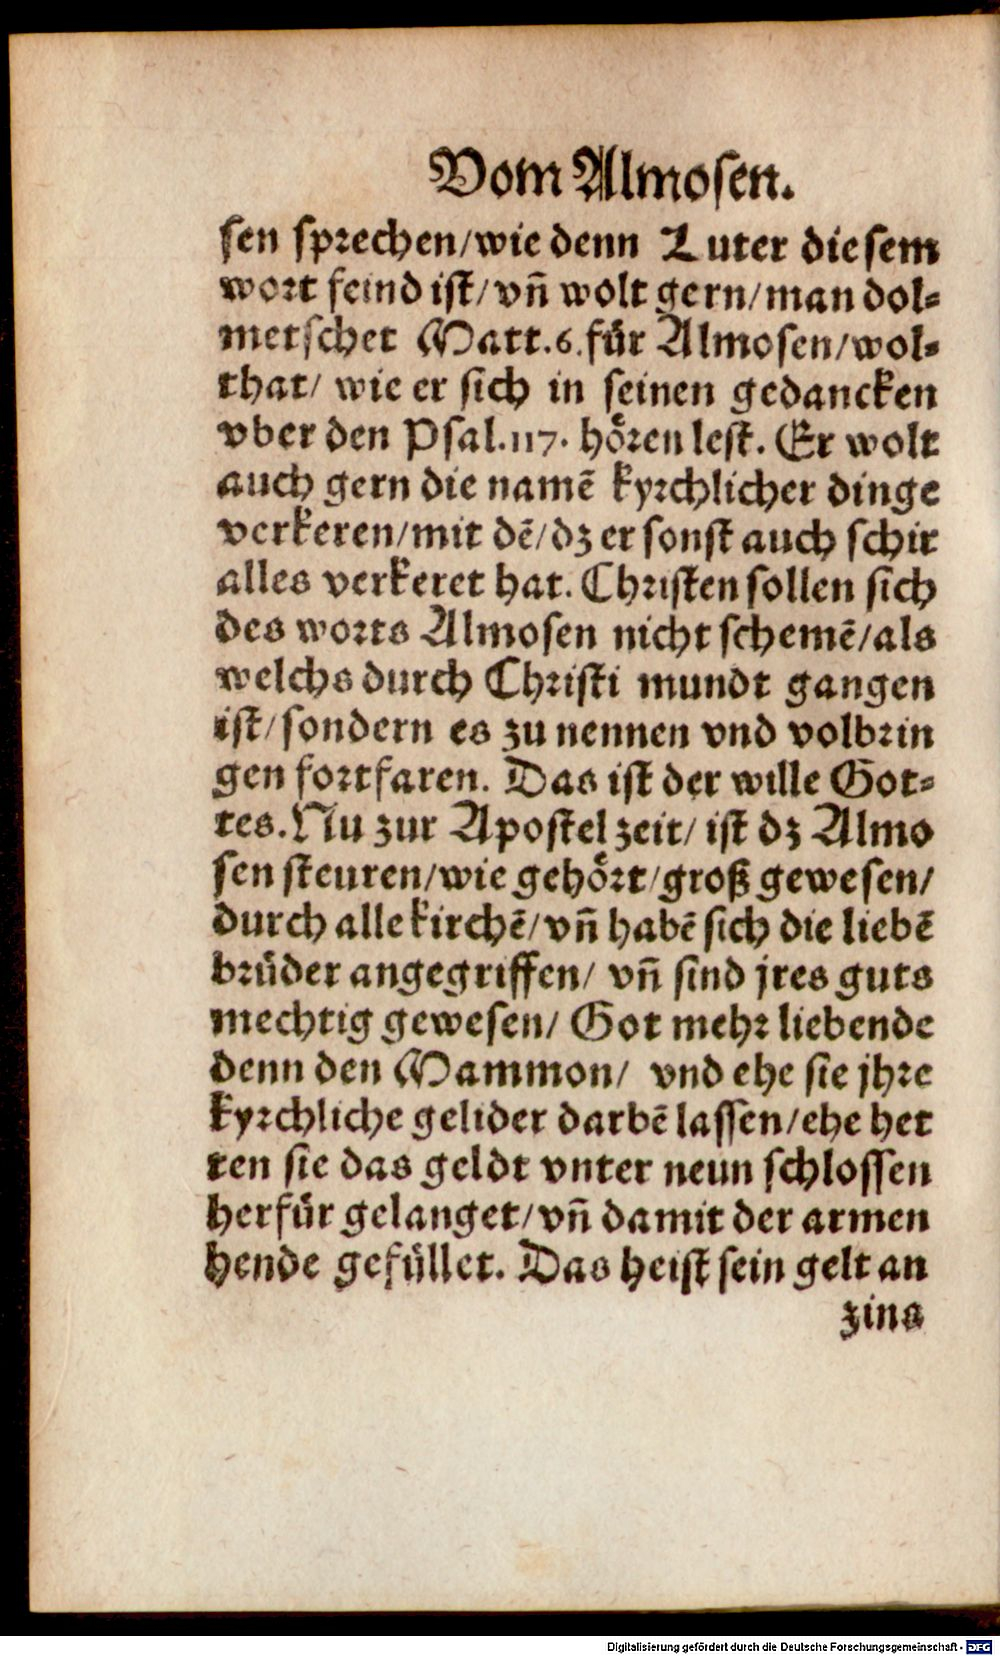 Vom Almosen.
sen sprechen/wie denn Luter diesem
wort feind ist/vñ wolt gern/man dol⸗
metschet Matt.6.für Almosen/wol⸗
that/ wie er sich in seinen gedancken
vber den Psal.117. hoͤren lest. Er wolt
auch gern die namẽ kyrchlicher dinge
verkeren/mit dẽ/dz er sonst auch schir
alles verkeret hat. Christen sollen sich
des worts Almosen nicht schemẽ/als
welchs durch Christi mundt gangen
ist/sondern es zu nennen vnd volbrin
gen fortfaren. Das ist der wille Got⸗
tes.Nu zur Apostel zeit/ ist dz Almo
sen steuren/wie gehoͤrt/groß gewesen/
durch alle kirchẽ/vñ habẽ sich die liebẽ
brüder angegriffen/ vñ sind jres guts
mechtig gewesen/ Got mehr liebende
denn den Mammon/ vnd ehe sie jhre
kyrchliche gelider darbẽ lassen/ehe het
ten sie das geldt vnter neun schlossen
herfür gelanget/vñ damit der armen
hende gefüllet. Das heist sein gelt an
zins
Digitalisierung gefördert durch die Deutsche Forschungsgemeinschaft - DFG